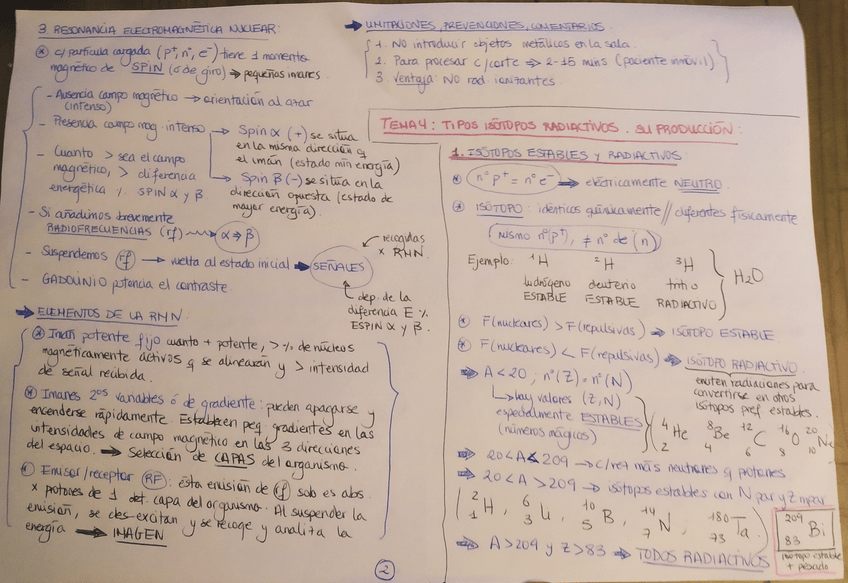 3. RESONANCIA ELECTROMAGNÉTICA NUCLEAR:
* c/ partícula cargada (p⁺, n⁺, e⁻) tiene 1 momento
magnético de SPIN (ó de giro) → pequeños imanes.
- Ausencia campo magnético → orientación al azar
(intenso)
- Presencia campo mag. intenso → Spin α (+) se sitúa
en la misma dirección q
el imán (estado mín energía)
→ Spin β (-) se sitúa en la
dirección opuesta (estado de
mayor energía).
- Cuanto > sea el campo
magnético, > diferencia
energética ٪ SPIN α y β
- Si añadimos brevemente
RADIOFRECUENCIAS (rf) → α → β
- Suspendemos rf → vuelta al estado inicial → SEÑALES
recogidas
x RMN.
dep. de la
diferencia E ٪
ESPIN α y β.
- GADOLINIO potencia el contraste
→ ELEMENTOS DE LA RMN
* Imán potente fijo cuanto + potente, > % de núcleos
magnéticamente activos q se alinearán y > intensidad
de señal recibida.
* Imanes 2ᵒˢ variables ó de gradiente: pueden apagarse y
encenderse rápidamente. Establecen peq gradientes en las
intensidades de campo magnético en las 3 direcciones
del espacio. → Selección de CAPAS del organismo.
* Emisor/receptor (RF): esta emisión de rf solo es abs.
x protones de 1 det. capa del organismo. Al suspender la
emisión, se des-excitan y se recoge y analiza la
energía → IMAGEN
2
→ LIMITACIONES, PREVENCIONES, COMENTARIOS
1. No introducir objetos metálicos en la sala.
2. Para procesar c/corte → 2-15 mins (paciente inmóvil).
3. Ventaja: NO rad ionizantes.
TEMA 4: TIPOS ISÓTOPOS RADIACTIVOS. SU PRODUCCIÓN:
1. ISÓTOPOS ESTABLES Y RADIACTIVOS:
* nº p⁺ = nº e⁻ → eléctricamente NEUTRO.
* ISÓTOPO: idénticos químicamente // diferentes físicamente
mismo nº (p⁺), ≠ nº de (n)
Ejemplo: ¹H ²H ³H
hidrógeno deuterio tritio
ESTABLE ESTABLE RADIACTIVO
H₂O
* F(nucleares) > F(repulsivas) → ISÓTOPO ESTABLE
* F(nucleares) < F(repulsivas) → ISÓTOPO RADIACTIVO.
emiten radiaciones para
convertirse en otros
isótopos pref estables.
→ A < 20; nº(Z) = nº(N)
↳ hay valores (Z, N)
especialmente ESTABLES
(números mágicos)
⁴₂He ⁸₄Be ¹²₆C ¹⁶₈O ²⁰₁₀Ne
→ 20 < A < 209 → c/vez más neutrones q protones.
→ 20 < A > 209 → isótopos estables con N par y Z impar
(²₁H, ⁶₃Li, ¹⁰₅B, ¹⁴₇N, ¹⁸⁰₇₃Ta.)
²⁰⁹₈₃Bi
isótopo estable
+ pesado
→ A > 209 y Z > 83 → TODOS RADIACTIVOS